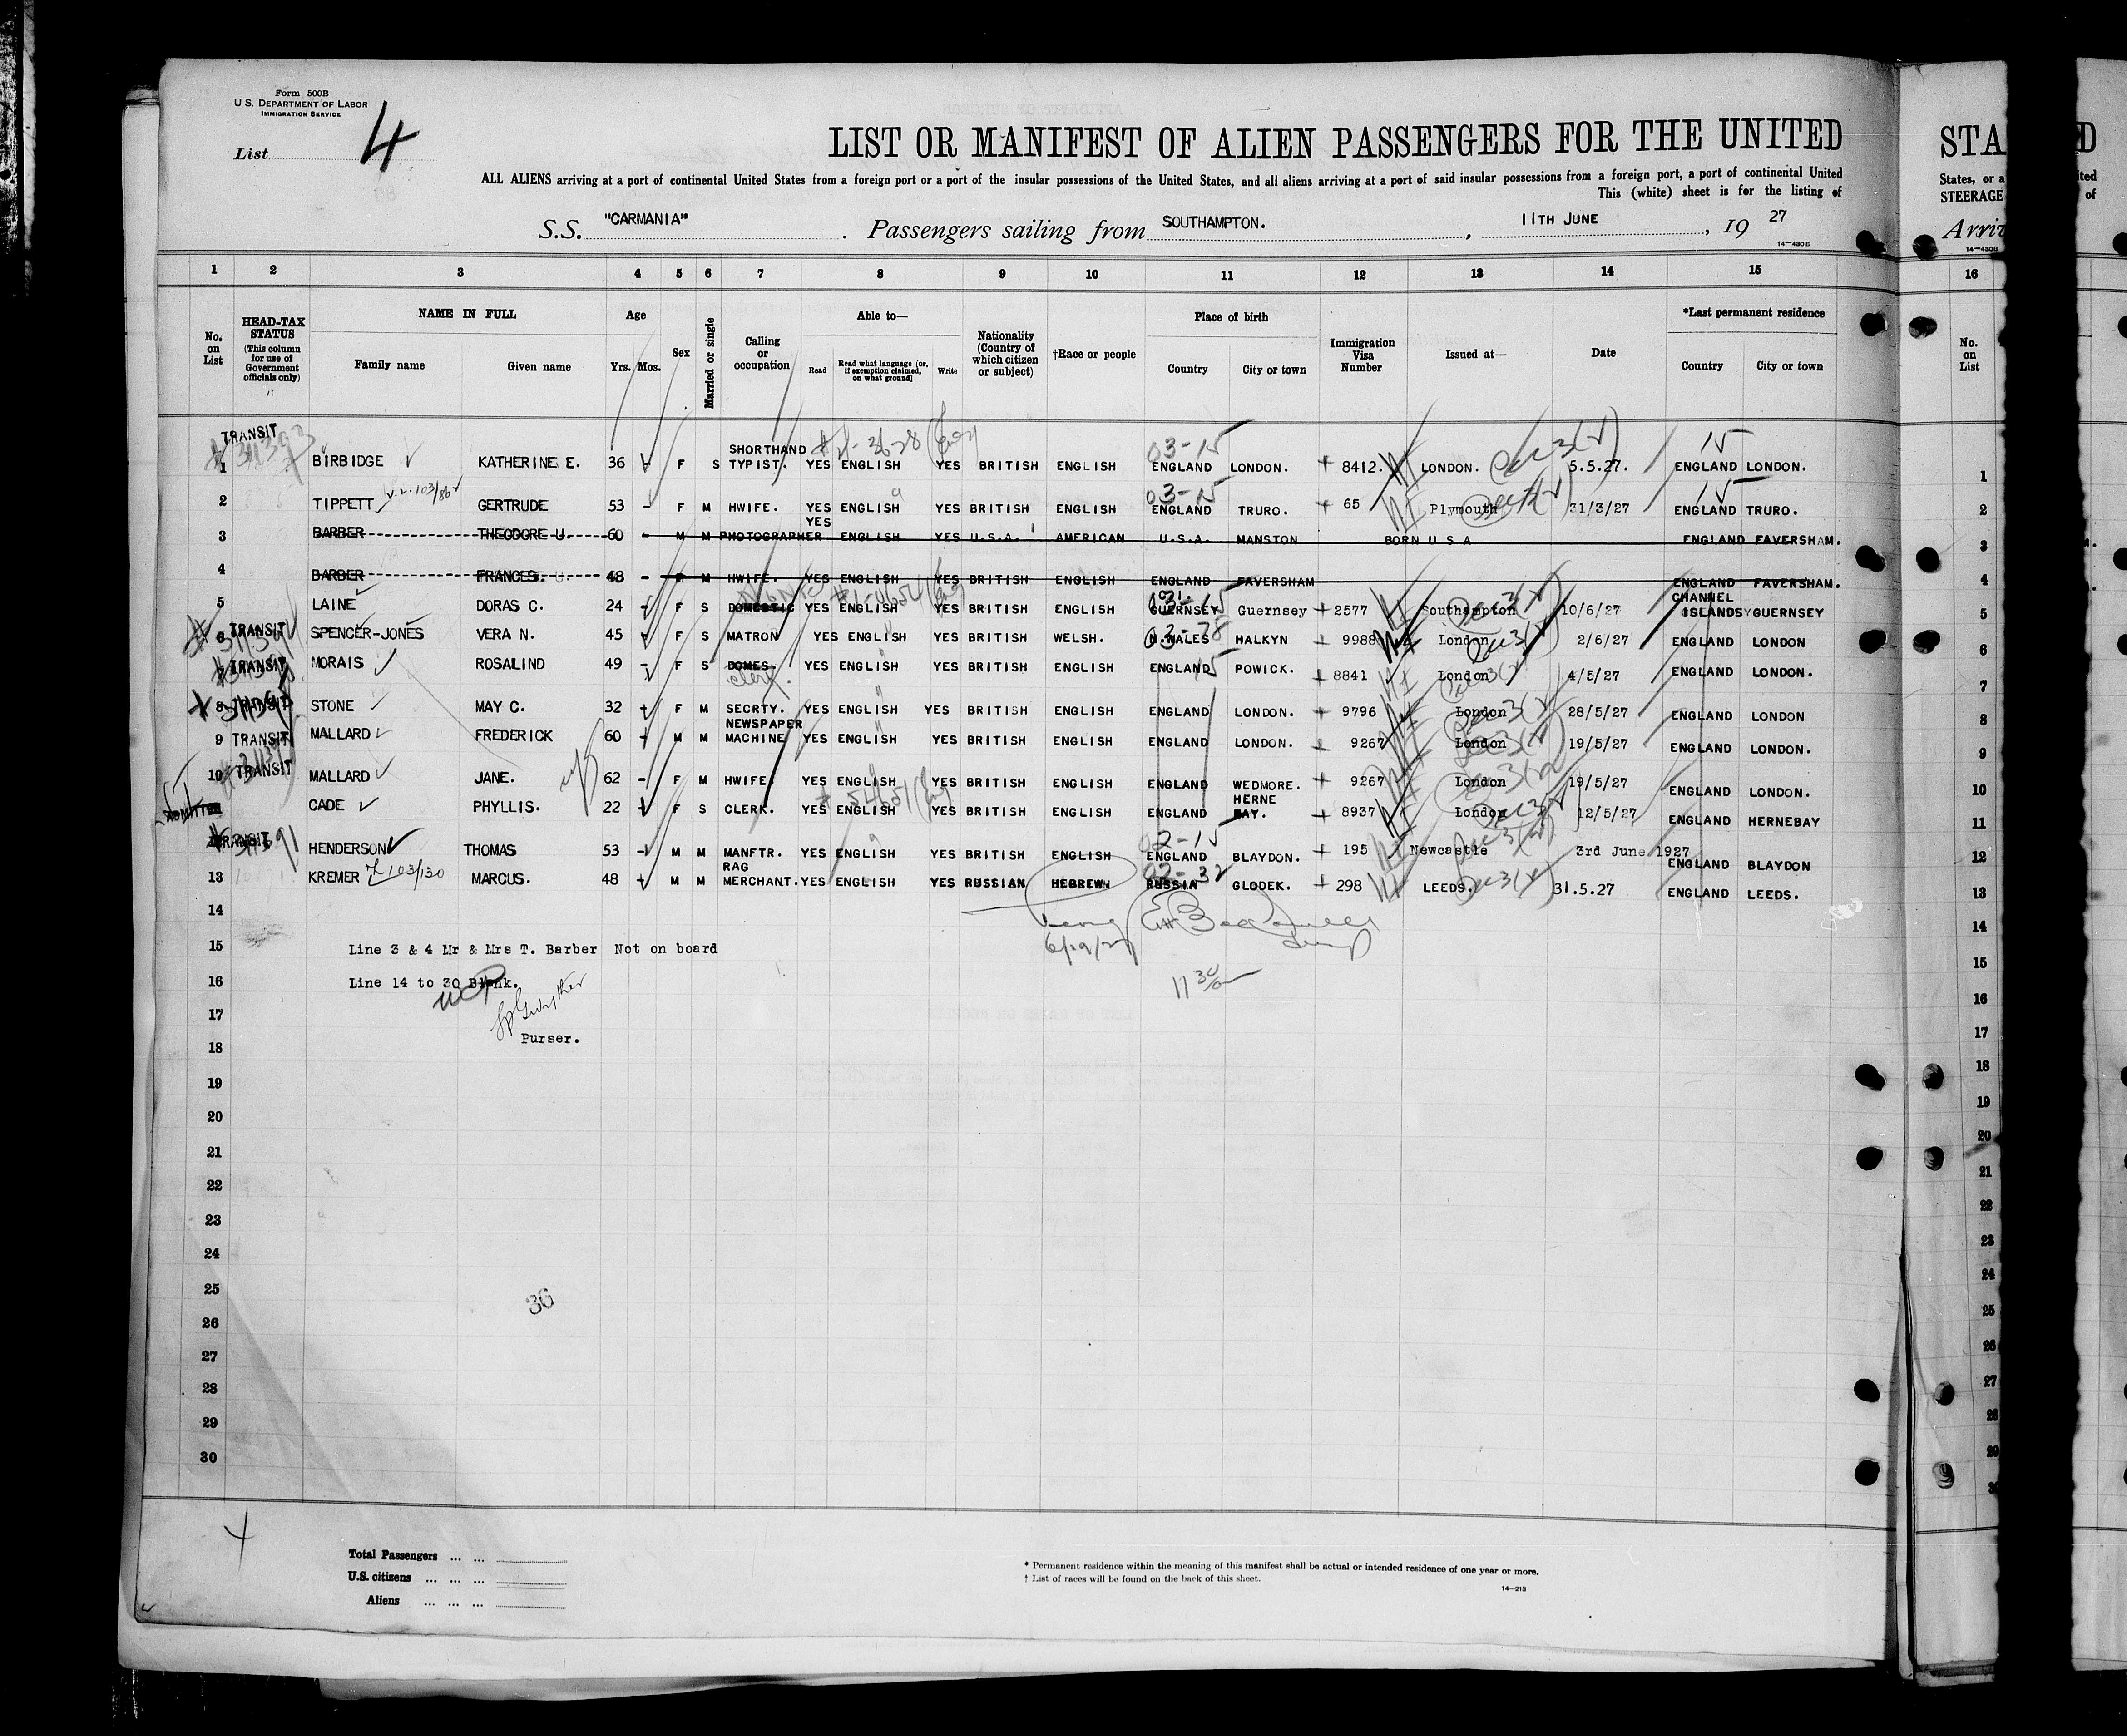 Form 500B
U S. DEPARTMENT OF LABOR
IMMIGRATION SERVICE
List 4
LIST OR MANIFEST OF ALIEN PASSENGERS FOR THE UNITED
ALL ALIENS arriving at a port of continental United States from a foreign port or a port of the insular possessions of the United States, and all aliens arriving at a port of said insular possessions from a foreign port, a port of continental United
This (white) sheet is for the listing of
S.S. "CARMANIA" . Passengers sailing from SOUTHAMPTON. , 11TH JUNE , 19 27
14—430B
1 2 3 4 5 6 7 8 9 10 11 12 13 14 15
No. on List
HEAD-TAX STATUS (This column for use of Government officials only)
NAME IN FULL Family name Given name
Age Yrs. Mos.
Sex
Married or single
Calling or occupation
Able to— Read Read what language (or, if exemption claimed, on what ground) Write
Nationality (Country of which citizen or subject)
†Race or people
Place of birth Country City or town
Immigration Visa Number
Issued at—
Date
*Last permanent residence Country City or town
TRANSIT 1 BIRBIDGE KATHERINE E. 36 F S SHORTHAND TYPIST. YES ENGLISH YES BRITISH ENGLISH 03-15 ENGLAND LONDON. 8412. LONDON. 5.5.27. 15 ENGLAND LONDON.
2 TIPPETT GERTRUDE 53 - F M HWIFE. YES ENGLISH YES BRITISH ENGLISH 03-15 ENGLAND TRURO. 65 Plymouth 31/3/27 15 ENGLAND TRURO.
3 BARBER THEODORE U. 60 - M M PHOTOGRAPHER YES ENGLISH YES U.S.A. AMERICAN U.S.A. MANSTON BORN U S A ENGLAND FAVERSHAM.
4 BARBER FRANCES. 48 - F M HWIFE. YES ENGLISH YES BRITISH ENGLISH ENGLAND FAVERSHAM ENGLAND FAVERSHAM.
5 LAINE DORAS C. 24 F S DOMESTIC YES ENGLISH YES BRITISH ENGLISH GUERNSEY Guernsey 2577 Southampton 10/6/27 CHANNEL ISLANDS GUERNSEY
6 TRANSIT SPENCER-JONES VERA N. 45 F S MATRON YES ENGLISH YES BRITISH WELSH. N.WALES HALKYN 9988 London 2/6/27 ENGLAND LONDON
7 TRANSIT MORAIS ROSALIND 49 F S DOMES. YES ENGLISH YES BRITISH ENGLISH ENGLAND 15 POWICK. 8841 London 4/5/27 ENGLAND LONDON.
8 TRANSIT STONE MAY C. 32 F M SECRTY. YES ENGLISH YES BRITISH ENGLISH ENGLAND LONDON. 9796 London 28/5/27 ENGLAND LONDON
9 TRANSIT MALLARD FREDERICK 60 M M NEWSPAPER MACHINE YES ENGLISH YES BRITISH ENGLISH ENGLAND LONDON. 9267 London 19/5/27 ENGLAND LONDON.
10 TRANSIT MALLARD JANE. 62 - F M HWIFE. YES ENGLISH YES BRITISH ENGLISH ENGLAND WEDMORE. 9267 London 19/5/27 ENGLAND LONDON.
CADE PHYLLIS. 22 F S CLERK. YES ENGLISH YES BRITISH ENGLISH ENGLAND HERNE BAY. 8937 London 12/5/27 ENGLAND HERNEBAY
TRANSIT HENDERSON THOMAS 53 M M MANFTR. YES ENGLISH YES BRITISH ENGLISH ENGLAND BLAYDON. 195 Newcastle 3rd June 1927 ENGLAND BLAYDON
13 KREMER 103/130 MARCUS. 48 M M RAG MERCHANT. YES ENGLISH YES RUSSIAN HEBREW RUSSIA GLODEK. 298 LEEDS. 31.5.27 ENGLAND LEEDS.
14
15 Line 3 & 4 Mr & Mrs T. Barber Not on board
16 Line 14 to 30 Blank.
17
Purser.
18
19
20
21
22
23
24
25
36
26
27
28
29
30
4
Total Passengers ... ...
U.S. citizens ... ... ...
Aliens ... ... ...
* Permanent residence within the meaning of this manifest shall be actual or intended residence of one year or more.
† List of races will be found on the back of this sheet.
14—213
STA
States, or a
STEERAGE
14—430B
16
No. on List
1
2
3
4
5
6
7
8
9
10
11
12
13
14
15
16
17
18
19
20
21
22
23
24
25
26
27
28
29